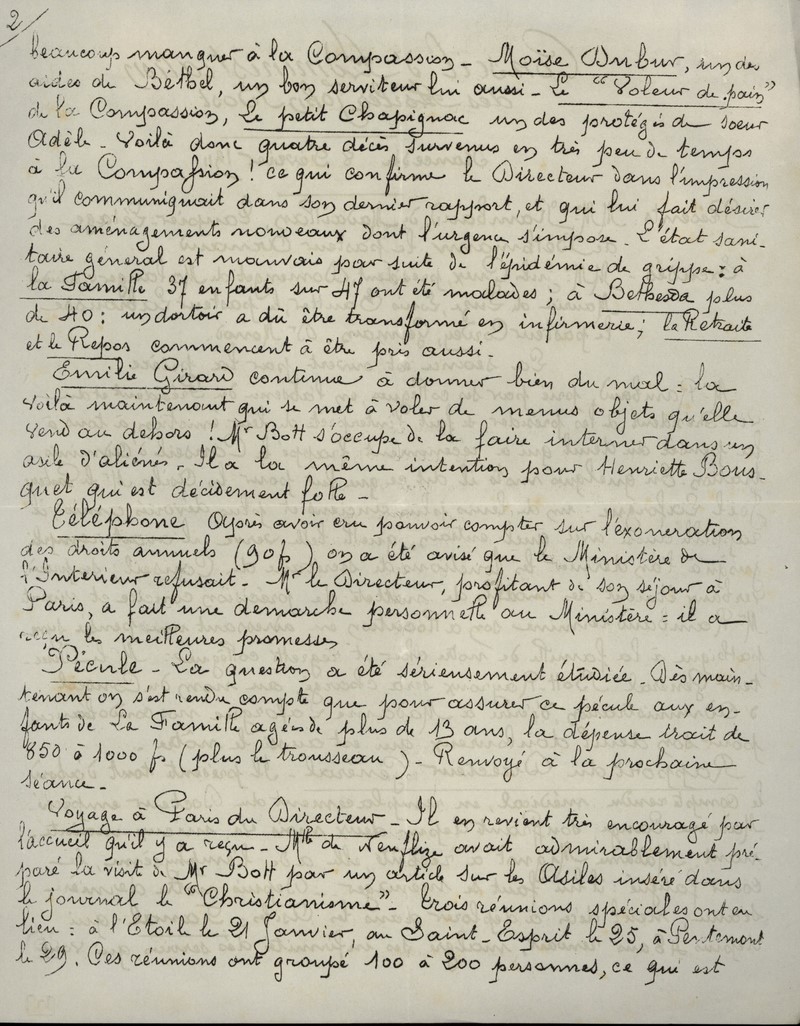 2/
beaucoup manquer à la Compassion - Moïse Dubur, un des
aides de Béthel, un bon serviteur lui aussi - Le "Voleur de pain"
de la Compassion, Le petit Chapignac un des protégés de soeur
Adèle - Voilà donc quatre décès survenus en très peu de temps
à la Compassion ! ce qui confirme le Directeur dans l'impression
qu'il communiquait dans son dernier rapport, et qui lui fait désirer
des aménagements nouveaux dont l'urgence s'impose. L'état sani-
taire général est mauvais par suite de l'épidémie de grippe : à
la Famille 37 enfants sur 47 ont été malades ; à Bethesda plus
de 40 : un dortoir a dû être transformé en infirmerie ; la Retraite
et le Repos commencent à être pris aussi -
Emilie Girard continue à donner bien du mal : la
voilà maintenant qui se met à voler de menus objets qu'elle
vend au dehors ! Mr Bott s'occupe de la faire interner dans un
asile d'aliénés. Il a la même intention pour Henriette Bous-
quet qui est décidement folle -
Téléphone Après avoir cru pouvoir compter sur l'exoneration
des droits annuels (90f) on a été avisé que le Ministère de
l'Interieur refusait - Mr le Directeur, profitant de son séjour à
Paris, a fait une demarche personnelle au Ministère : il a
reçu les meilleures promesses
Pécule - La question a été sérieusement étudiée - Dès main-
tenant on s'est rendu compte que pour assurer ce pécule aux en-
fants de La Famille agées de plus de 13 ans, la dépense irait de
850 à 1000 f. (plus le trousseau) - Renvoyé à la prochaine
séance -
Voyage à Paris du Directeur - Il en revient très encouragé par
l'accueil qu'il y a reçu - Mlle de Neuflize avait admirablement pré-
paré la visite de Mr Bott par un article sur les Asiles inséré dans
le journal le "Christianisme" - Trois réunions spéciales ont eu
lieu : à l'Etoile le 21 Janvier, au Saint-Esprit le 25, à Pentemont
le 29. Ces réunions ont groupé 100 à 200 personnes, ce qui est